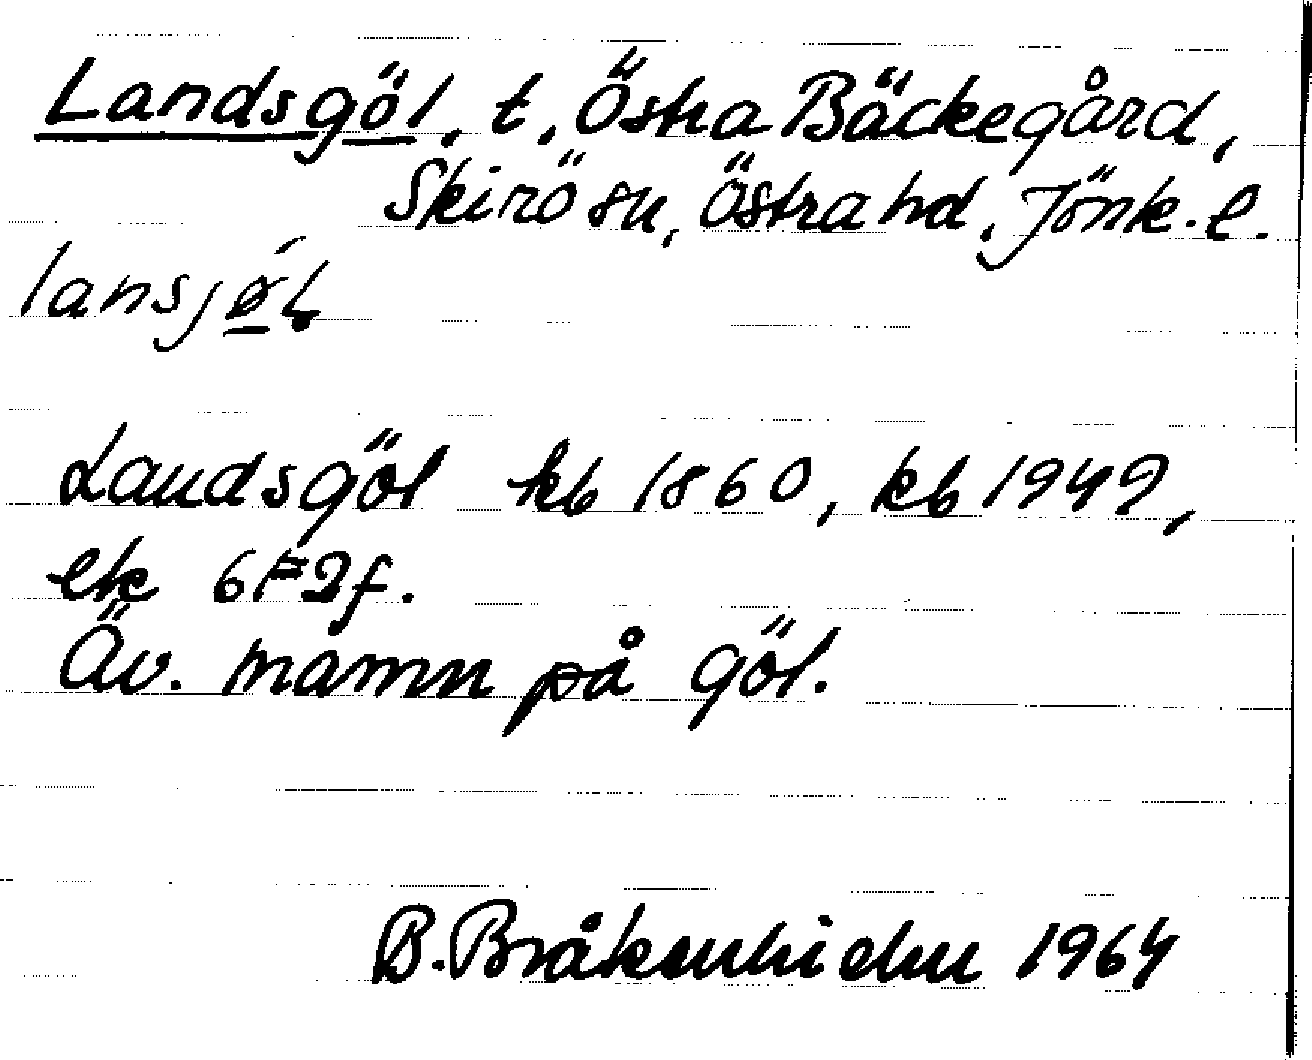 Landsgöl, t, Östra Bäckegård,
Skirö sn, Östra hd, Jönk. l.
lansjǿ̱ɫ
Landsgöl kb 1860, kb 1949,
ek 6F2f.
Äv. namn på göl.
B. Bråkenhielm 1964